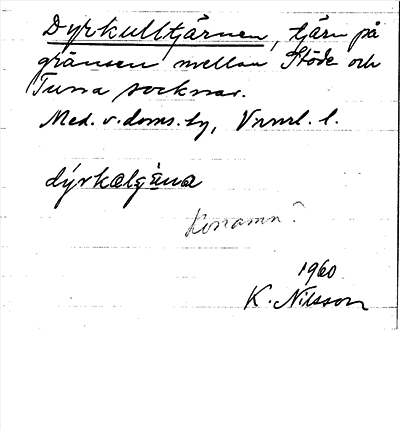 Dyrkulltjärnen, tjärn på
gränsen mellan Stöde och
Tuna socknar.
Med. v. doms. by, Vnrrl. l.
dýrkalǥäna
Konamn?
1960
K. Nilsson